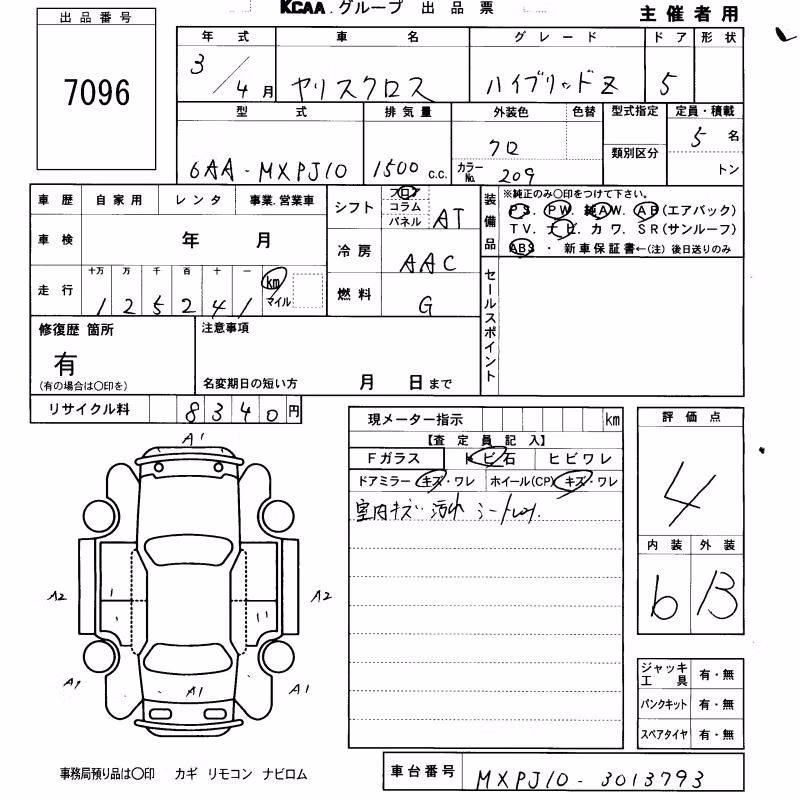 KCAA.グループ 出品票
主催者用
出品番号
7096
年式 車名 グレード ドア 形状
3/4月 ヤリスクロス ハイブリッドZ 5
型式 排気量 外装色 色替 型式指定 定員・積載
類別区分
6AA-MXPJ10 1500 C.C. クロ 5名
カラーNo. 209 トン
車歴 自家用 レンタ 事業.営業車
車検 年 月
走行 十万 万 千 百 十 一
1 2 5 2 4 1 km マイル
シフト フロ コラム パネル AT
冷房 AAC
燃料 G
装備品 ※純正のみ○印をつけて下さい。
PS. PW. 純AW. AB(エアバック)
TV. ナビ. カワ. SR(サンルーフ)
ABS ・ 新車保証書←(注) 後日送りのみ
セールスポイント
修復歴 箇所
有
(有の場合は○印を)
注意事項
名変期日の短い方 月 日まで
リサイクル料 8340円
現メーター指示 km
【査定員記入】
Fガラス トビ石 ヒビワレ
ドアミラー キズ・ワレ ホイール(CP) キズ・ワレ
室内キズ 汚れ
評価点
4
内装 外装
b B
A1
A2 A2
A1 A1 A1
ジャッキ工具 有・無
パンクキット 有・無
スペアタイヤ 有・無
事務局預り品は○印 カギ リモコン ナビロム
車台番号 MXPJ10-3013793